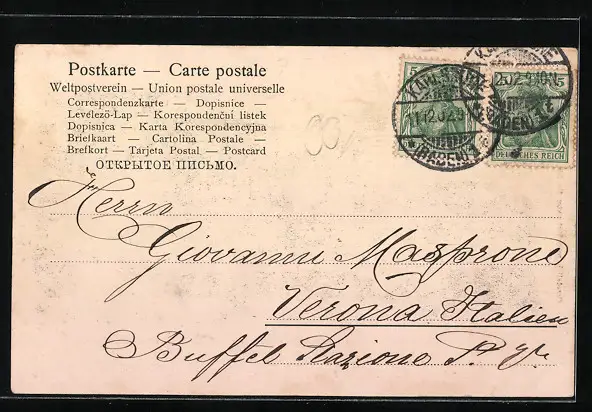 Postkarte — Carte postale
Weltpostverein — Union postale universelle
Correspondenzkarte — Dopisnice —
Levélező-Lap — Korespondenční listek
Dopisnica — Karta Korespondencyjna
Briefkaart — Cartolina Postale —
Brefkort — Tarjeta Postal — Postcard
ОТКРЫТОЕ ПИСЬМО.
5
5
DEUTSCHES REICH
11 12 02
(BADEN)
Herrn
Giovanni
Verona Italien
Buffet Stazione P. V.